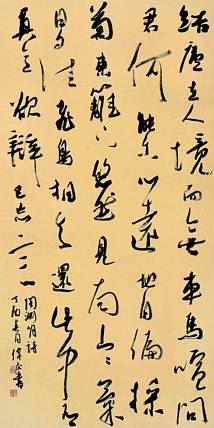 結廬在人境而無車馬喧問
君何能尔心遠地自偏採
菊東籬下悠然見南山山氣
日夕佳飛鳥相与還此中有
真意欲辯已忘言
陶渊明詩
丁酉 月 書